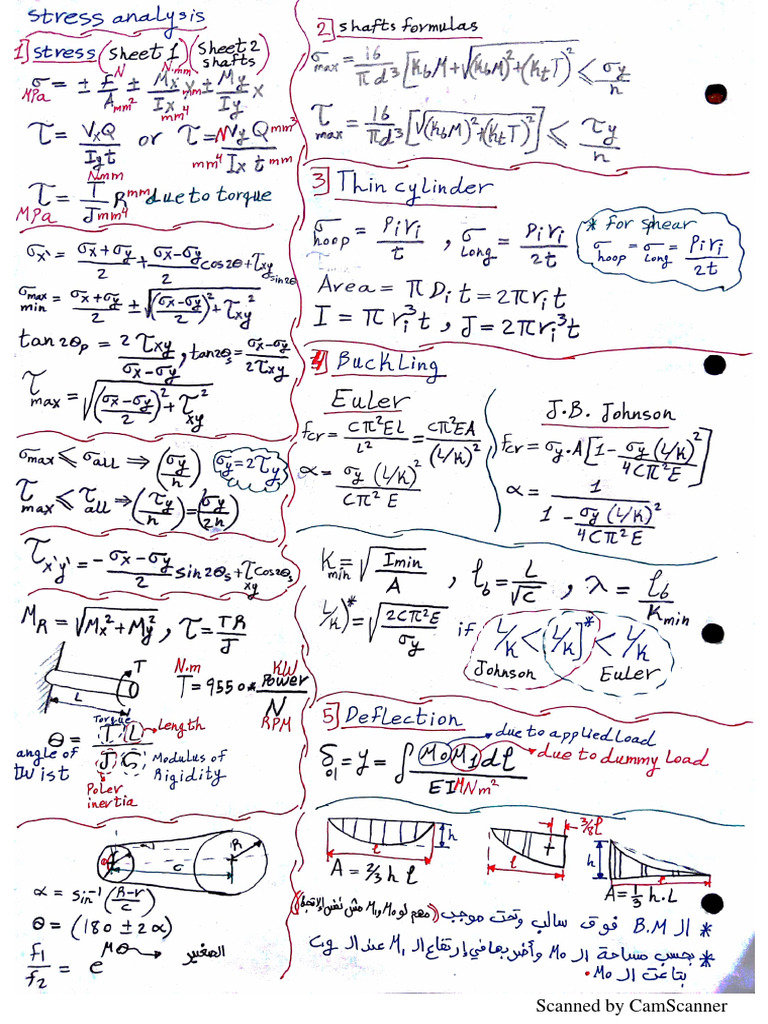 stress analysis
1 stress (sheet 1) (sheet 2 shafts)
σ = ± F/A ± Mx/Ix y ± My/Iy x
MPa N mm² N.mm mm mm⁴
τ = VxQ/Iyt or τ = N Vy Q mm³ / Ix t mm mm⁴
τ = T/J R mm due to torque
MPa N.mm mm⁴
σx' = (σx+σy)/2 + (σx-σy)/2 cos2θ + τxy sin2θ
σmax min = (σx+σy)/2 ± √((σx-σy)/2)² + τxy²
tan2θp = 2τxy/(σx-σy), tan2θs = (σx-σy)/2τxy
τmax = √((σx-σy)/2)² + τxy²
σmax ≤ σall ⇒ (σy/n) σy = 2τy
τmax ≤ τall ⇒ (τy/n) = (σy/2n)
τx'y' = -(σx-σy)/2 sin2θs + τxy cos2θs
MR = √Mx²+My², τ = TR/J
T L
N.m KW
T = 9550 * Power/N
RPM
Torque Length
θ = T L / J G
angle of twist
Modulus of Rigidity
Poler inertia
r c R
α = sin⁻¹ (R-r/c)
θ = (180 ± 2α)
f1/f2 = e^μθ الصغير
2 shafts formulas
σmax = 16/πd³ [KbM + √(KbM)² + (KtT)²] ≤ σy/n
τmax = 16/πd³ [√(KbM)² + (KtT)²] ≤ τy/n
3 Thin cylinder
σhoop = Piri/t , σLong = Piri/2t
* for sphear
σhoop = σLong = Piri/2t
Area = π Di t = 2πri t
I = π ri³ t , J = 2π ri³ t
4 Buckling
Euler
fcr = Cπ²EI/L² = Cπ²EA/(L/K)²
α = σy (L/K)² / Cπ² E
J.B. Johnson
fcr = σy.A [1 - σy (L/K)²/4Cπ²E]
α = 1 / (1 - σy (L/K)²/4Cπ²E)
Kmin = √Imin/A , lb = L/√C , λ = lb/Kmin
L/K)* = √2Cπ²E/σy if L/K < L/K]* < L/K
Johnson Euler
5 Deflection
due to applied load
δ01 = y = ∫ M0 M1 dl / EI
due to dummy load
MNm²
h l A = 2/3 h l
3/8 l l
h l A = 1/3 h.L
* ال B.M فوق سالب وتحت موجب (مهم لو M0 و M1 مش نفس الإتجاه)
* بحسب مساحة ال M0 وأضربها في إرتفاع ال M1 عند ال c.g
بتاعت ال M0.
Scanned by CamScanner